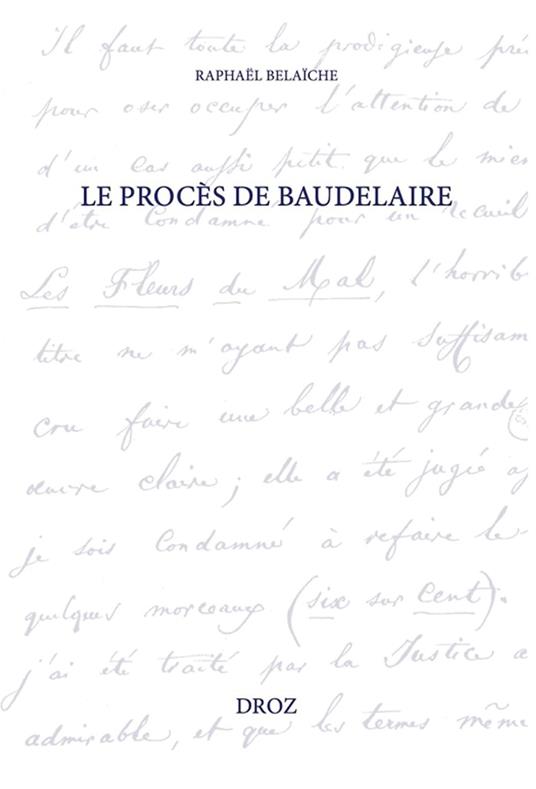 Il faut toute la prodigieuse pré
RAPHAËL BELAÏCHE
pour oser occuper l'attention de
d'un cas aussi petit que le mien
LE PROCÈS DE BAUDELAIRE
d'être Condamné pour un recueil
Les Fleurs du Mal, l'horrib
titre ne m'ayant pas suffisam
cru faire une belle et grande
œuvre claire; elle a été jugée
je suis Condamné à refaire le
quelques morceaux (six sur Cent).
j'ai été traité par la Justice a
DROZ
admirable, et que les termes même